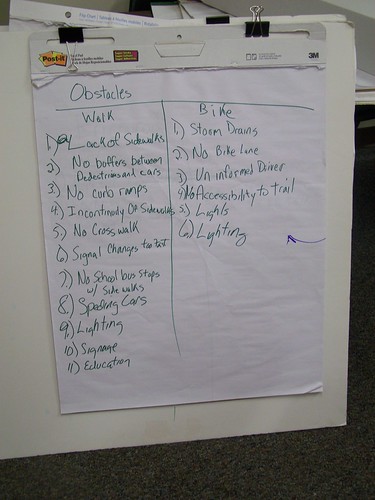 Post-it
3M
Obstacles
Walk
1.) Lack of Sidewalks
2) No buffers between
Pedestrians and cars
3) No curb ramps
4.) Incontinuity Of Sidewalks
5.) No Crosswalk
6) Signal Changes too fast
7.) No School bus stops
w/ Sidewalks
8.) Speeding Cars
9.) Lighting
10) Signage
11) Education
Bike
1.) Storm Drains
2.) No Bike Lane
3) Un informed Driver
4) No Accessibility to trail
5.) Lights
6.) Lighting